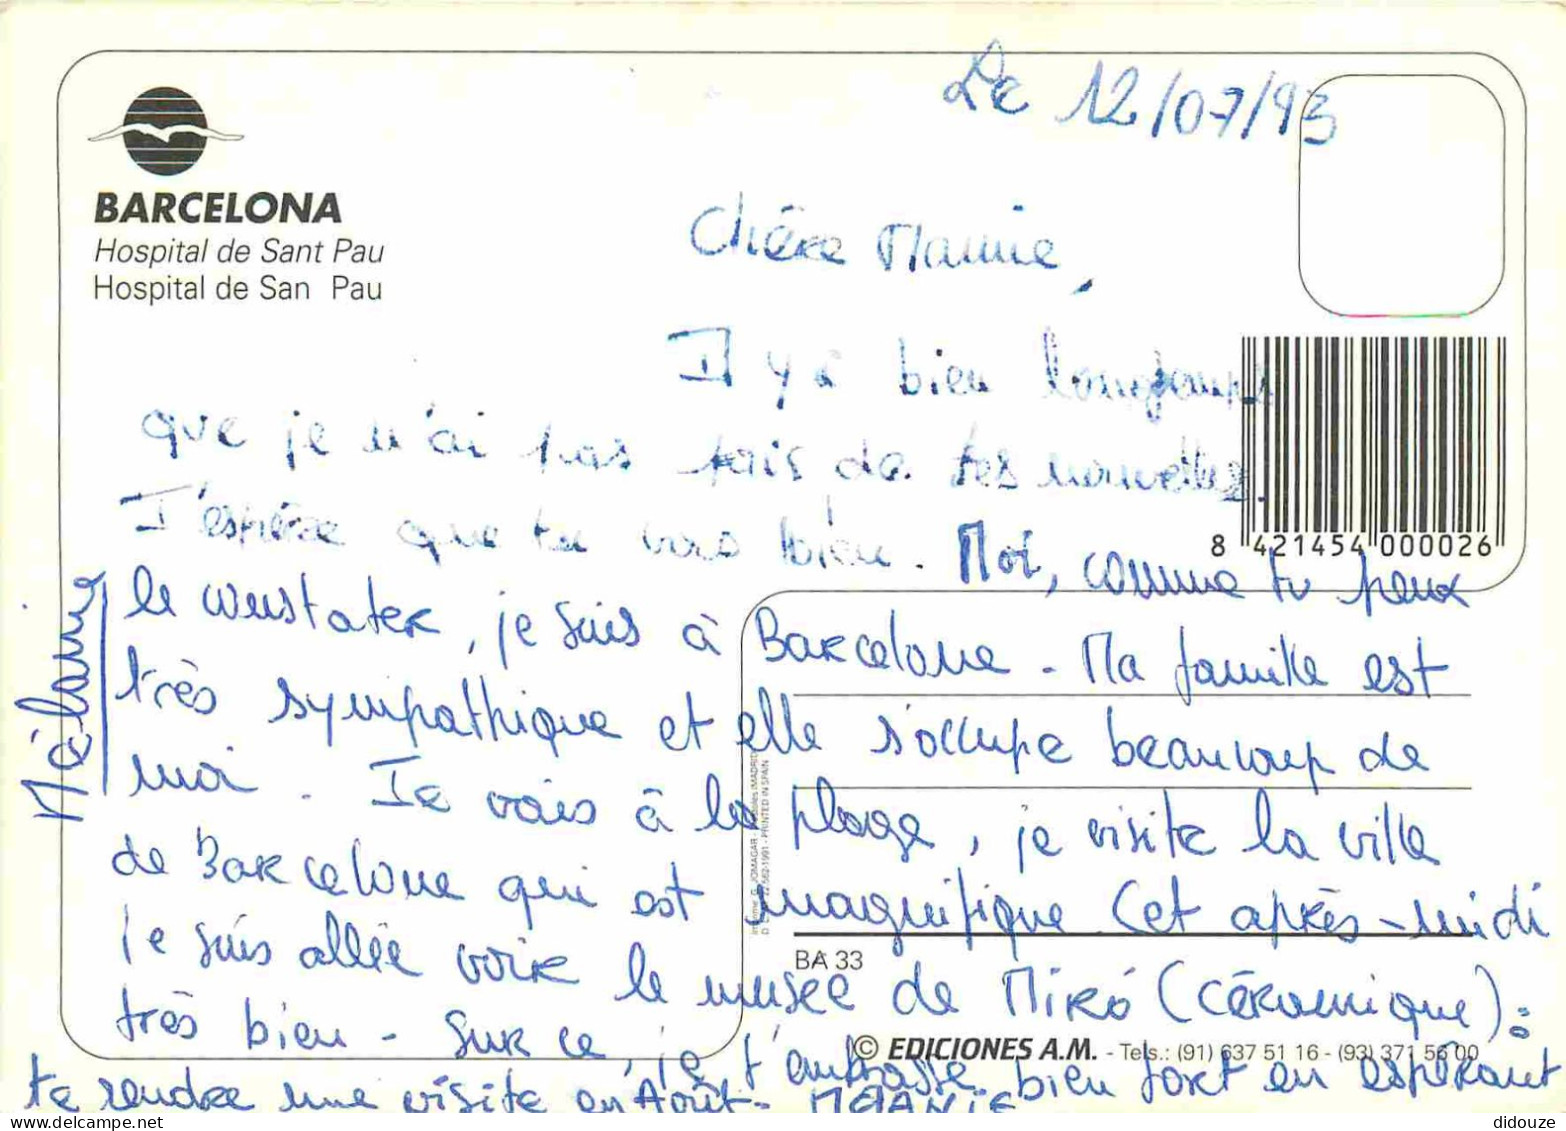 Le 12/07/93
BARCELONA
Hospital de Sant Pau
Hospital de San Pau
Chère Mamie,
Il y a bien longtemps
que je n'ai pas fais de tes nouvelles.
J'espère que tu vas bien. Moi, comme tu peux
8 421454 000026
le constater, je suis à Barcelone. Ma famille est
très sympathique et elle s'occupe beaucoup de
moi. Je vais à la plage, je visite la ville
de Barcelone qui est magnifique. Cet après-midi
je suis allée voir le musée de Miró (céramique) :
très bien. Sur ce, je t'embrasse bien fort en espérant
te rendre une visite en Août. MELANIE
Mélanie
BA 33
© EDICIONES A.M. - Tels.: (91) 637 51 16 - (93) 371 56 00
PRINTED IN SPAIN
didouze